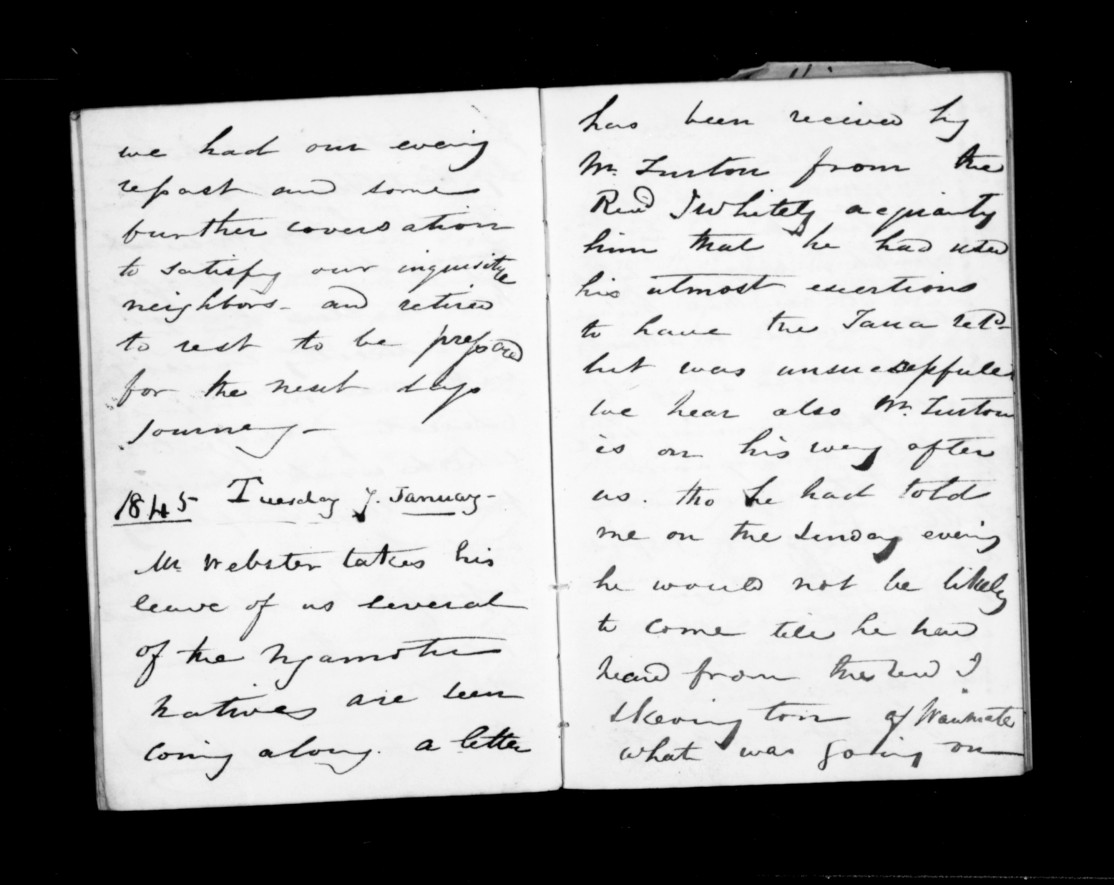 we had our evening
repast and some
further coversation
to satisfy our inquisitive
neighbors - and retired
to rest to be prepared
for the next days
Journey -
1845 Tuesday 7. January -
Mr. Webster takes his
leave of us several
of the Ngamotu
natives are seen
coming along. a letter
has been recieved by
Mr. Turton from the
Revd J Whitely acquainty
him that he had used
his utmost exertions
to have the Taua retd -
but was unsucessfull
we hear also Mr. Turton
is on his way after
us. tho he had told
me on the Sunday evening
he would not be likely
to come till he had
heard from the Revd I
Skevington of Waimate
what was going on